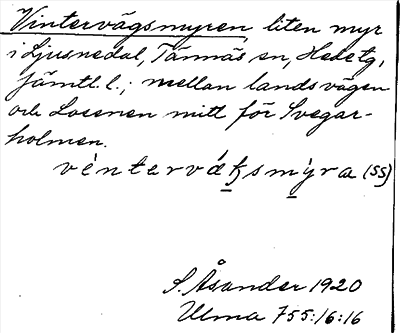 Vintervägsmyren liten myr
i Ljusnedal, Tännäs sn, Hede tg,
Jämtl. l.; mellan landsvägen
och Lossnen mitt för Svegar-
holmen.
vènterváksmýra (SS)
S. Åsander 1920
Ulma 755:16:16